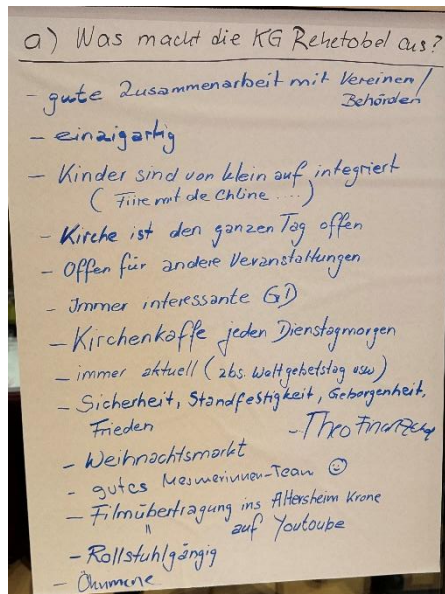 a) Was macht die KG Rehetobel aus?
- gute Zusammenarbeit mit Vereinen/
Behörden
- einzigartig
- Kinder sind von klein auf integriert
(Fiire mit de Chline ....)
- Kirche ist den ganzen Tag offen
- Offen für andere Veranstaltungen
- Immer interessante GD
- Kirchenkaffe jeden Dienstagmorgen
- immer aktuell (zbs. Weltgebetstag usw)
- Sicherheit, Standfestigkeit, Geborgenheit,
Frieden
- Theo
- Weihnachtsmarkt
- gutes Mesmerinnen-Team ☺
- Filmübertragung ins Altersheim Krone
" auf Youtoube
- Rollstuhlgängig
- Ökumene